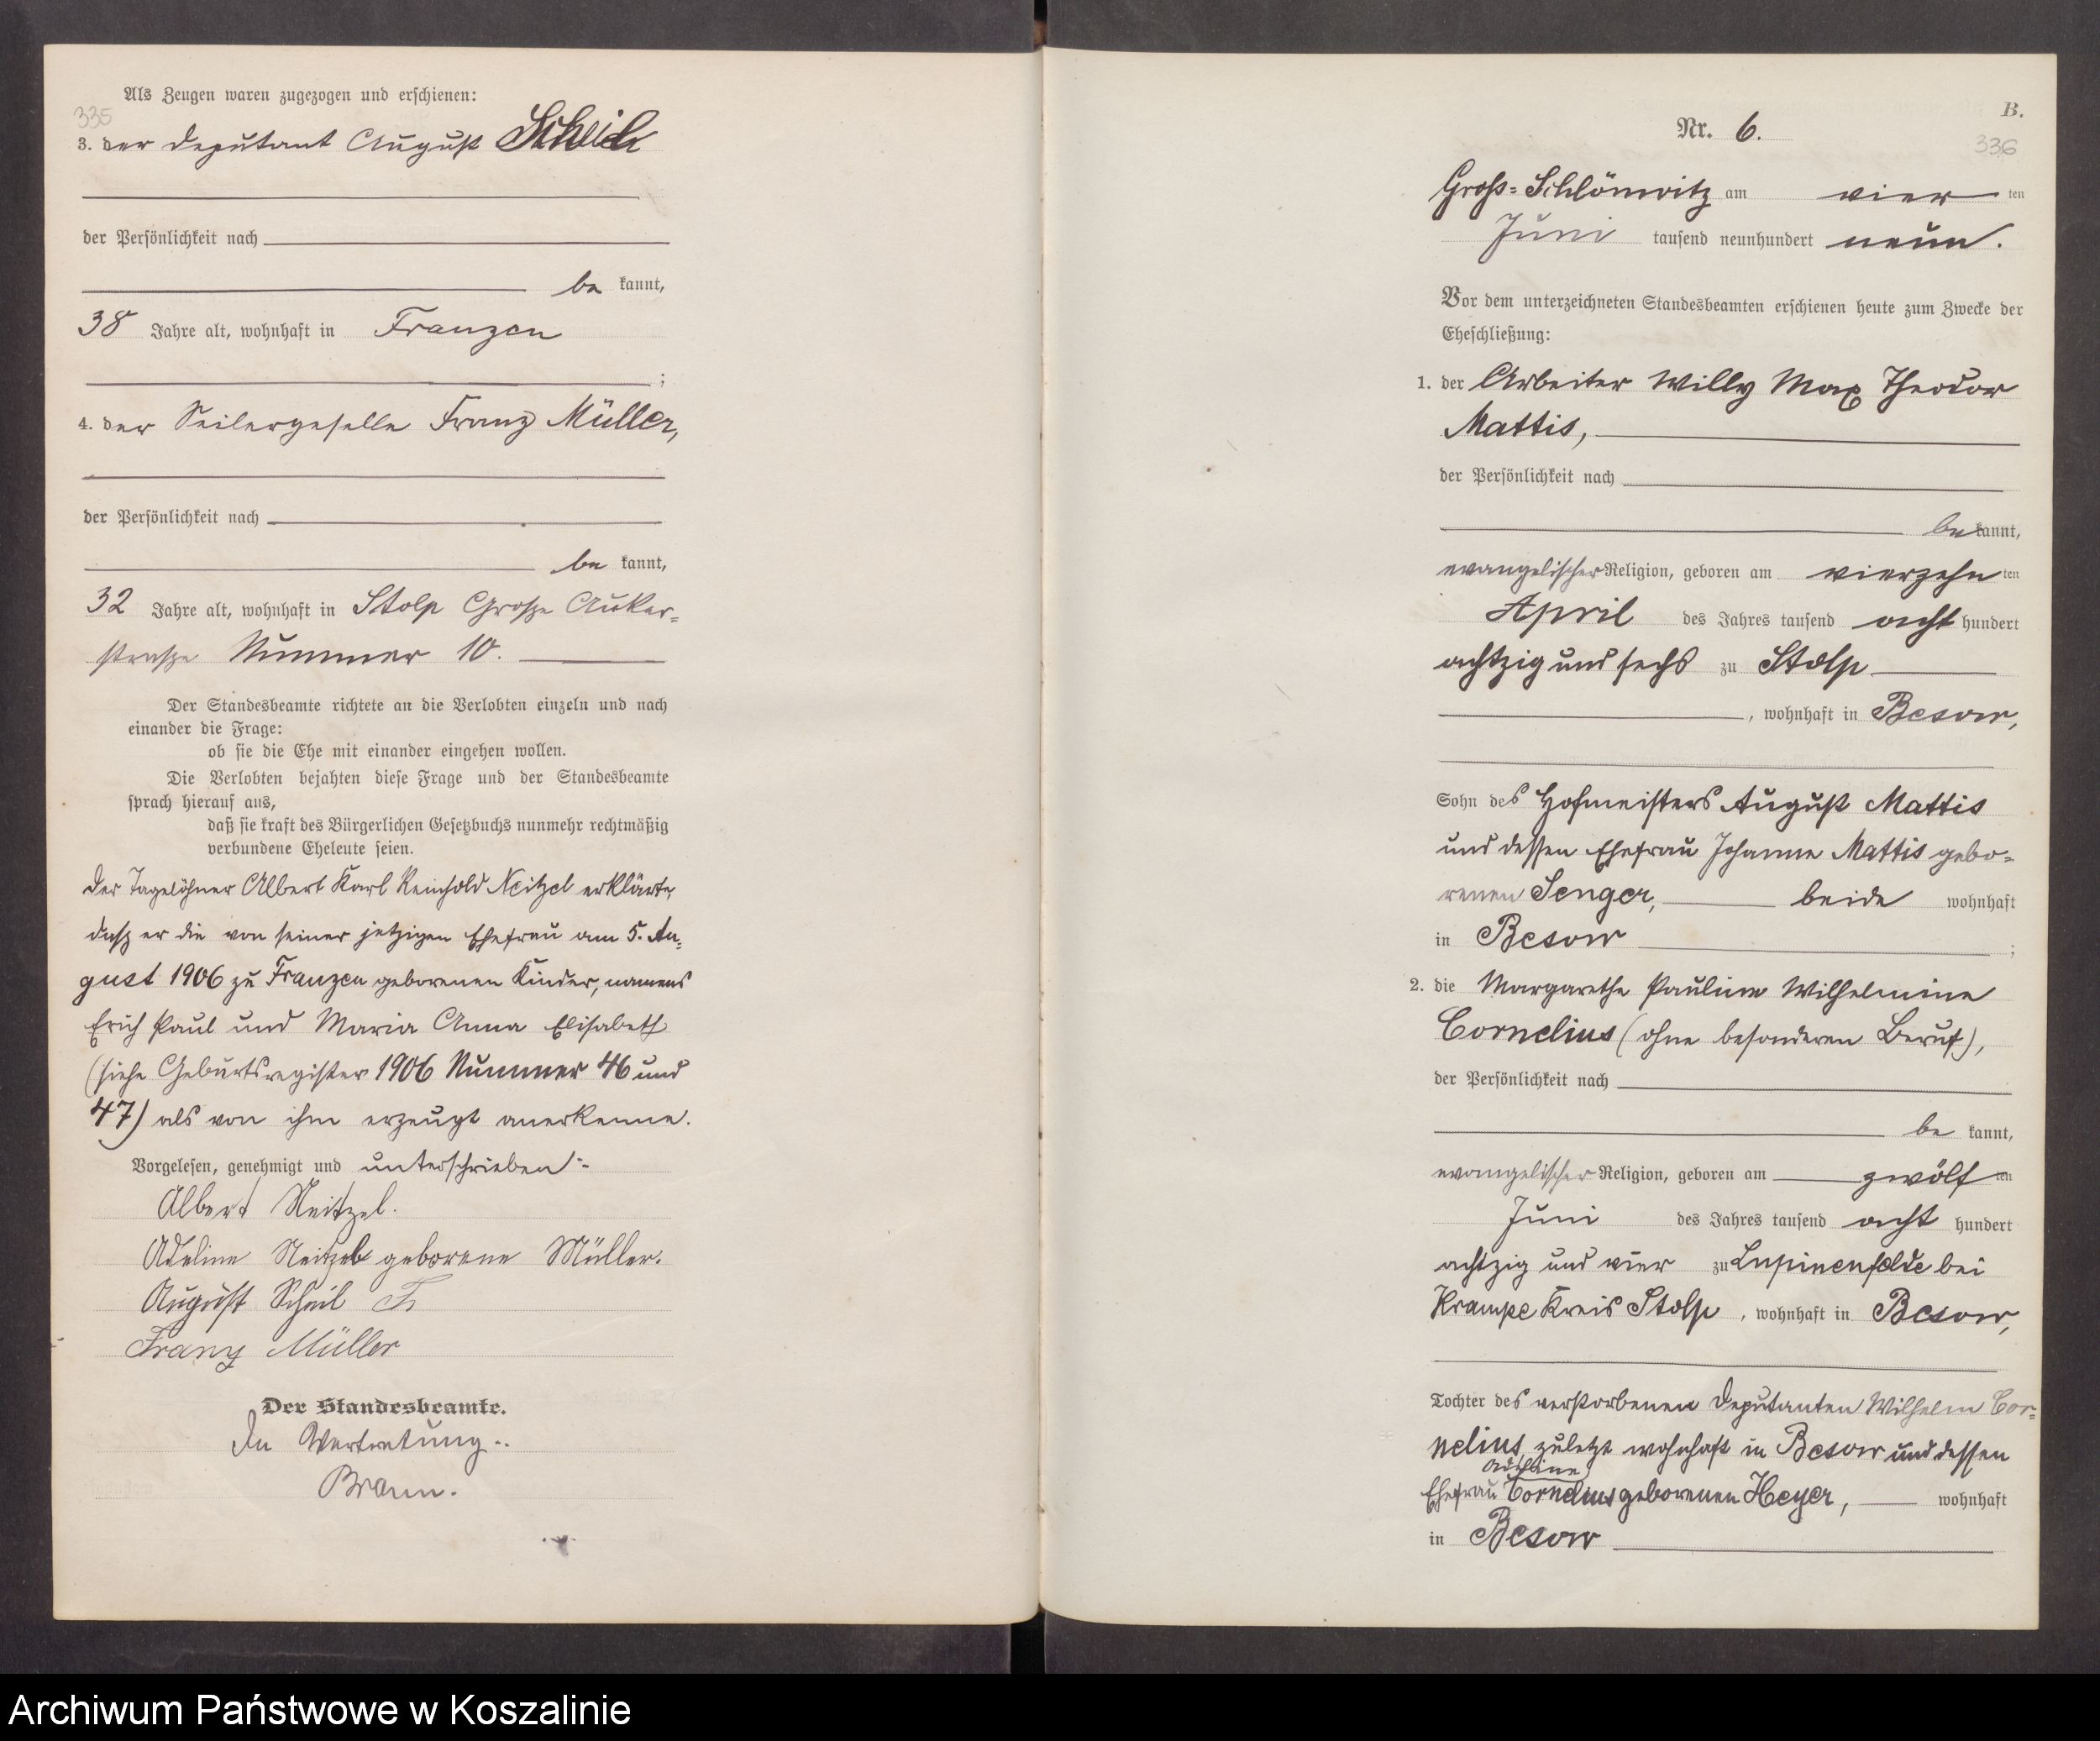 Als Zeugen waren zugezogen und erschienen:
335
3. der Deputant August Scheil
der Persönlichkeit nach
be kannt,
38 Jahre alt, wohnhaft in Franzen
;
4. der Seilergeselle Franz Müller,
der Persönlichkeit nach
be kannt,
32 Jahre alt, wohnhaft in Stolp Große Auker-
straße Nummer 10.
Der Standesbeamte richtete an die Verlobten einzeln und nach
einander die Frage:
ob sie die Ehe mit einander eingehen wollen.
Die Verlobten bejahten diese Frage und der Standesbeamte
sprach hierauf aus,
daß sie kraft des Bürgerlichen Gesetzbuchs nunmehr rechtmäßig
verbundene Eheleute seien.
Der Tagelöhner Albert Karl Reinhold Neitzel erklärte,
daß er die von seiner jetzigen Ehefrau am 5. Au-
gust 1906 zu Franzen geborenen Kinder, namens
Erich Paul und Maria Anna Elisabeth
(siehe Geburtsregister 1906 Nummer 46 und
47) als von ihm erzeugt anerkenne.
Vorgelesen, genehmigt und unterschrieben:
Albert Neitzel.
Adeline Neitzel geborene Müller.
August Scheil
Franz Müller
Der Standesbeamte.
In Vertretung..
B.
Nr. 6.
336
Groß-Schlönwitz am vier ten
Juni tausend neunhundert neun.
Vor dem unterzeichneten Standesbeamten erschienen heute zum Zwecke der
Eheschließung:
1. der Arbeiter Willy Max Theodor
Mattis,
der Persönlichkeit nach
be kannt,
evangelischer Religion, geboren am vierzehn ten
April des Jahres tausend acht hundert
achtzig und sechs zu Stolp
, wohnhaft in Besow,
Sohn des Hofmeisters August Mattis
und dessen Ehefrau Johanne Mattis gebo-
renen Senger, beide wohnhaft
in Besow ;
2. die Margarethe Pauline Wilhelmine
Cornelius (ohne besonderen Beruf),
der Persönlichkeit nach
be kannt,
evangelischer Religion, geboren am zwölf ten
Juni des Jahres tausend acht hundert
achtzig und vier zu Lupinenfelde bei
Krampe Kreis Stolp, wohnhaft in Besow,
Tochter des verstorbenen Deputanten Wilhelm Cor-
nelius, zuletzt wohnhaft in Besow und dessen
Ehefrau Cornelius geborenen Heyer, wohnhaft
in Besow
Archiwum Państwowe w Koszalinie